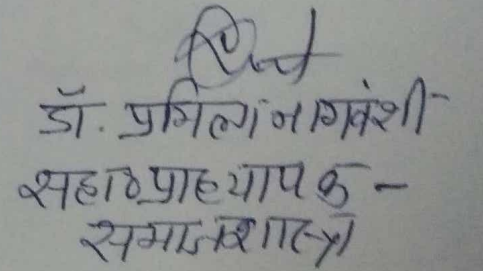 डॉ. प्रमिला नागवंशी
सहा० प्राध्यापक -
समाजशास्त्र